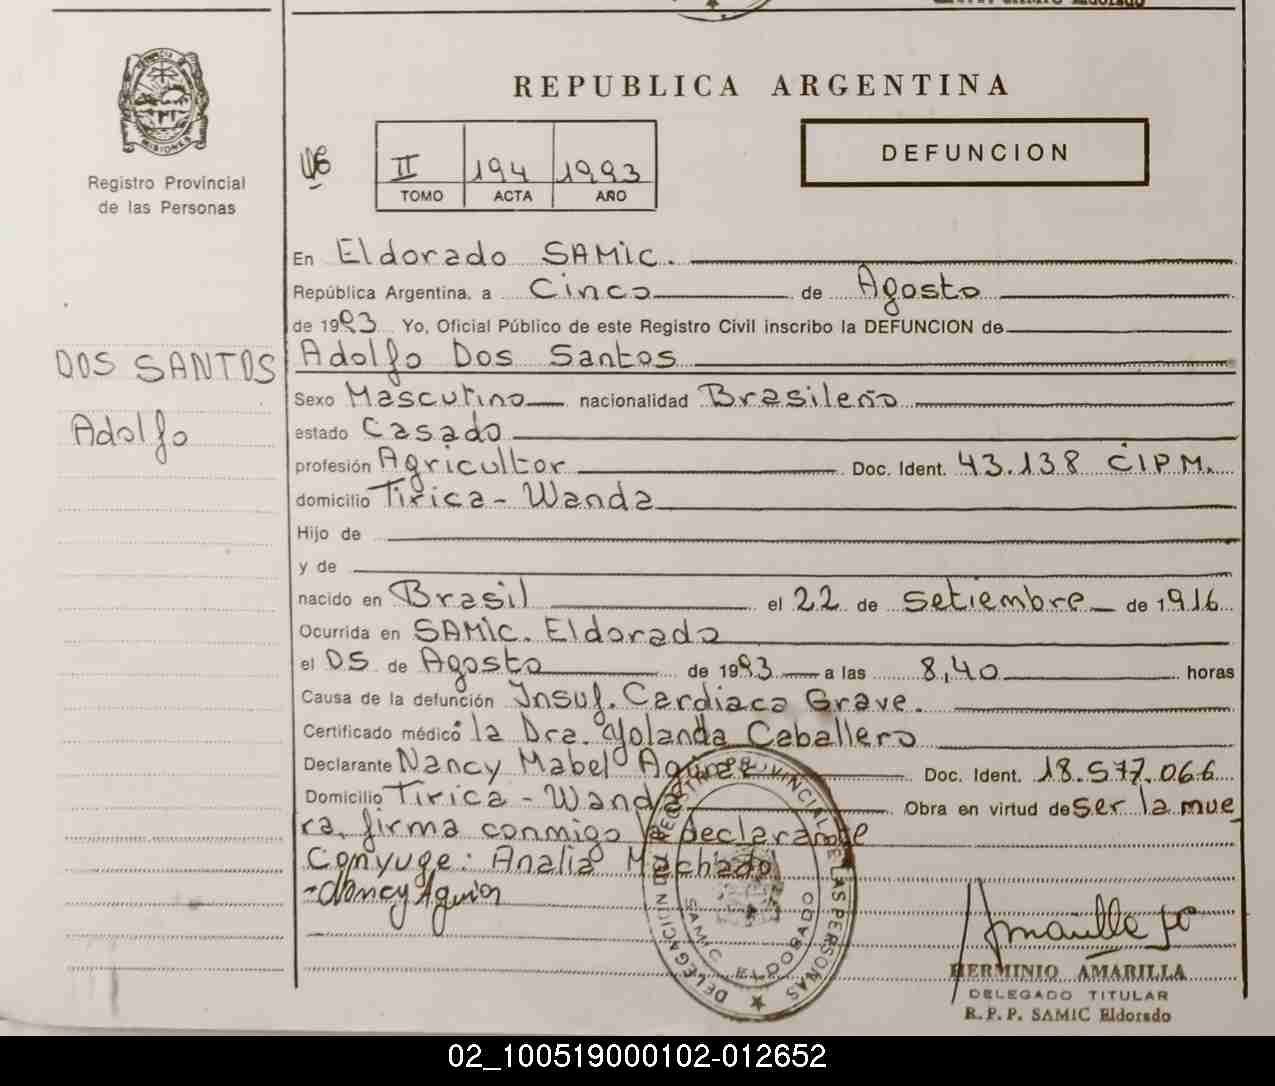 REPUBLICA ARGENTINA
MISIONES
Registro Provincial
de las Personas
II 194 1993
TOMO ACTA AÑO
DEFUNCION
En Eldorado SAMIC.
República Argentina, a Cinco de Agosto
de 1993 Yo, Oficial Público de este Registro Civil inscribo la DEFUNCION de
DOS SANTOS
Adolfo
Adolfo Dos Santos
Sexo Masculino nacionalidad Brasileño
estado Casado
profesión Agricultor Doc. Ident. 43.138 CIPM.
domicilio Tirica - Wanda
Hijo de
y de
nacido en Brasil el 22 de Setiembre de 1916
Ocurrida en SAMIC. Eldorado
el 05 de Agosto de 1993 a las 8,40 horas
Causa de la defunción Insuf. Cardiaca Grave.
Certificado médico la Dra. Yolanda Caballero
Declarante Nancy Mabel Doc. Ident. 18.577.066
Domicilio Tirica - Wanda Obra en virtud de ser la mue
ra, firma conmigo la declarante
Conyuge: Analia Machado
- Nancy Aguior
DELEGACION DEL REGISTRO PROVINCIAL DE LAS PERSONAS
SAMIC ELDORADO
HERMINIO AMARILLA
DELEGADO TITULAR
R.P.P. SAMIC Eldorado
02_100519000102-012652